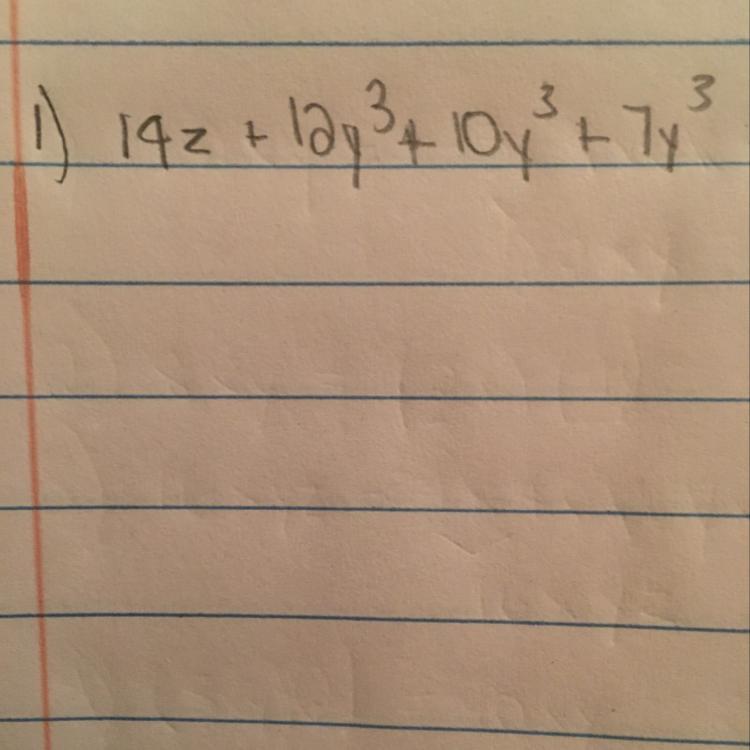 1) 14z + 12y³ + 10y³ + 7y³